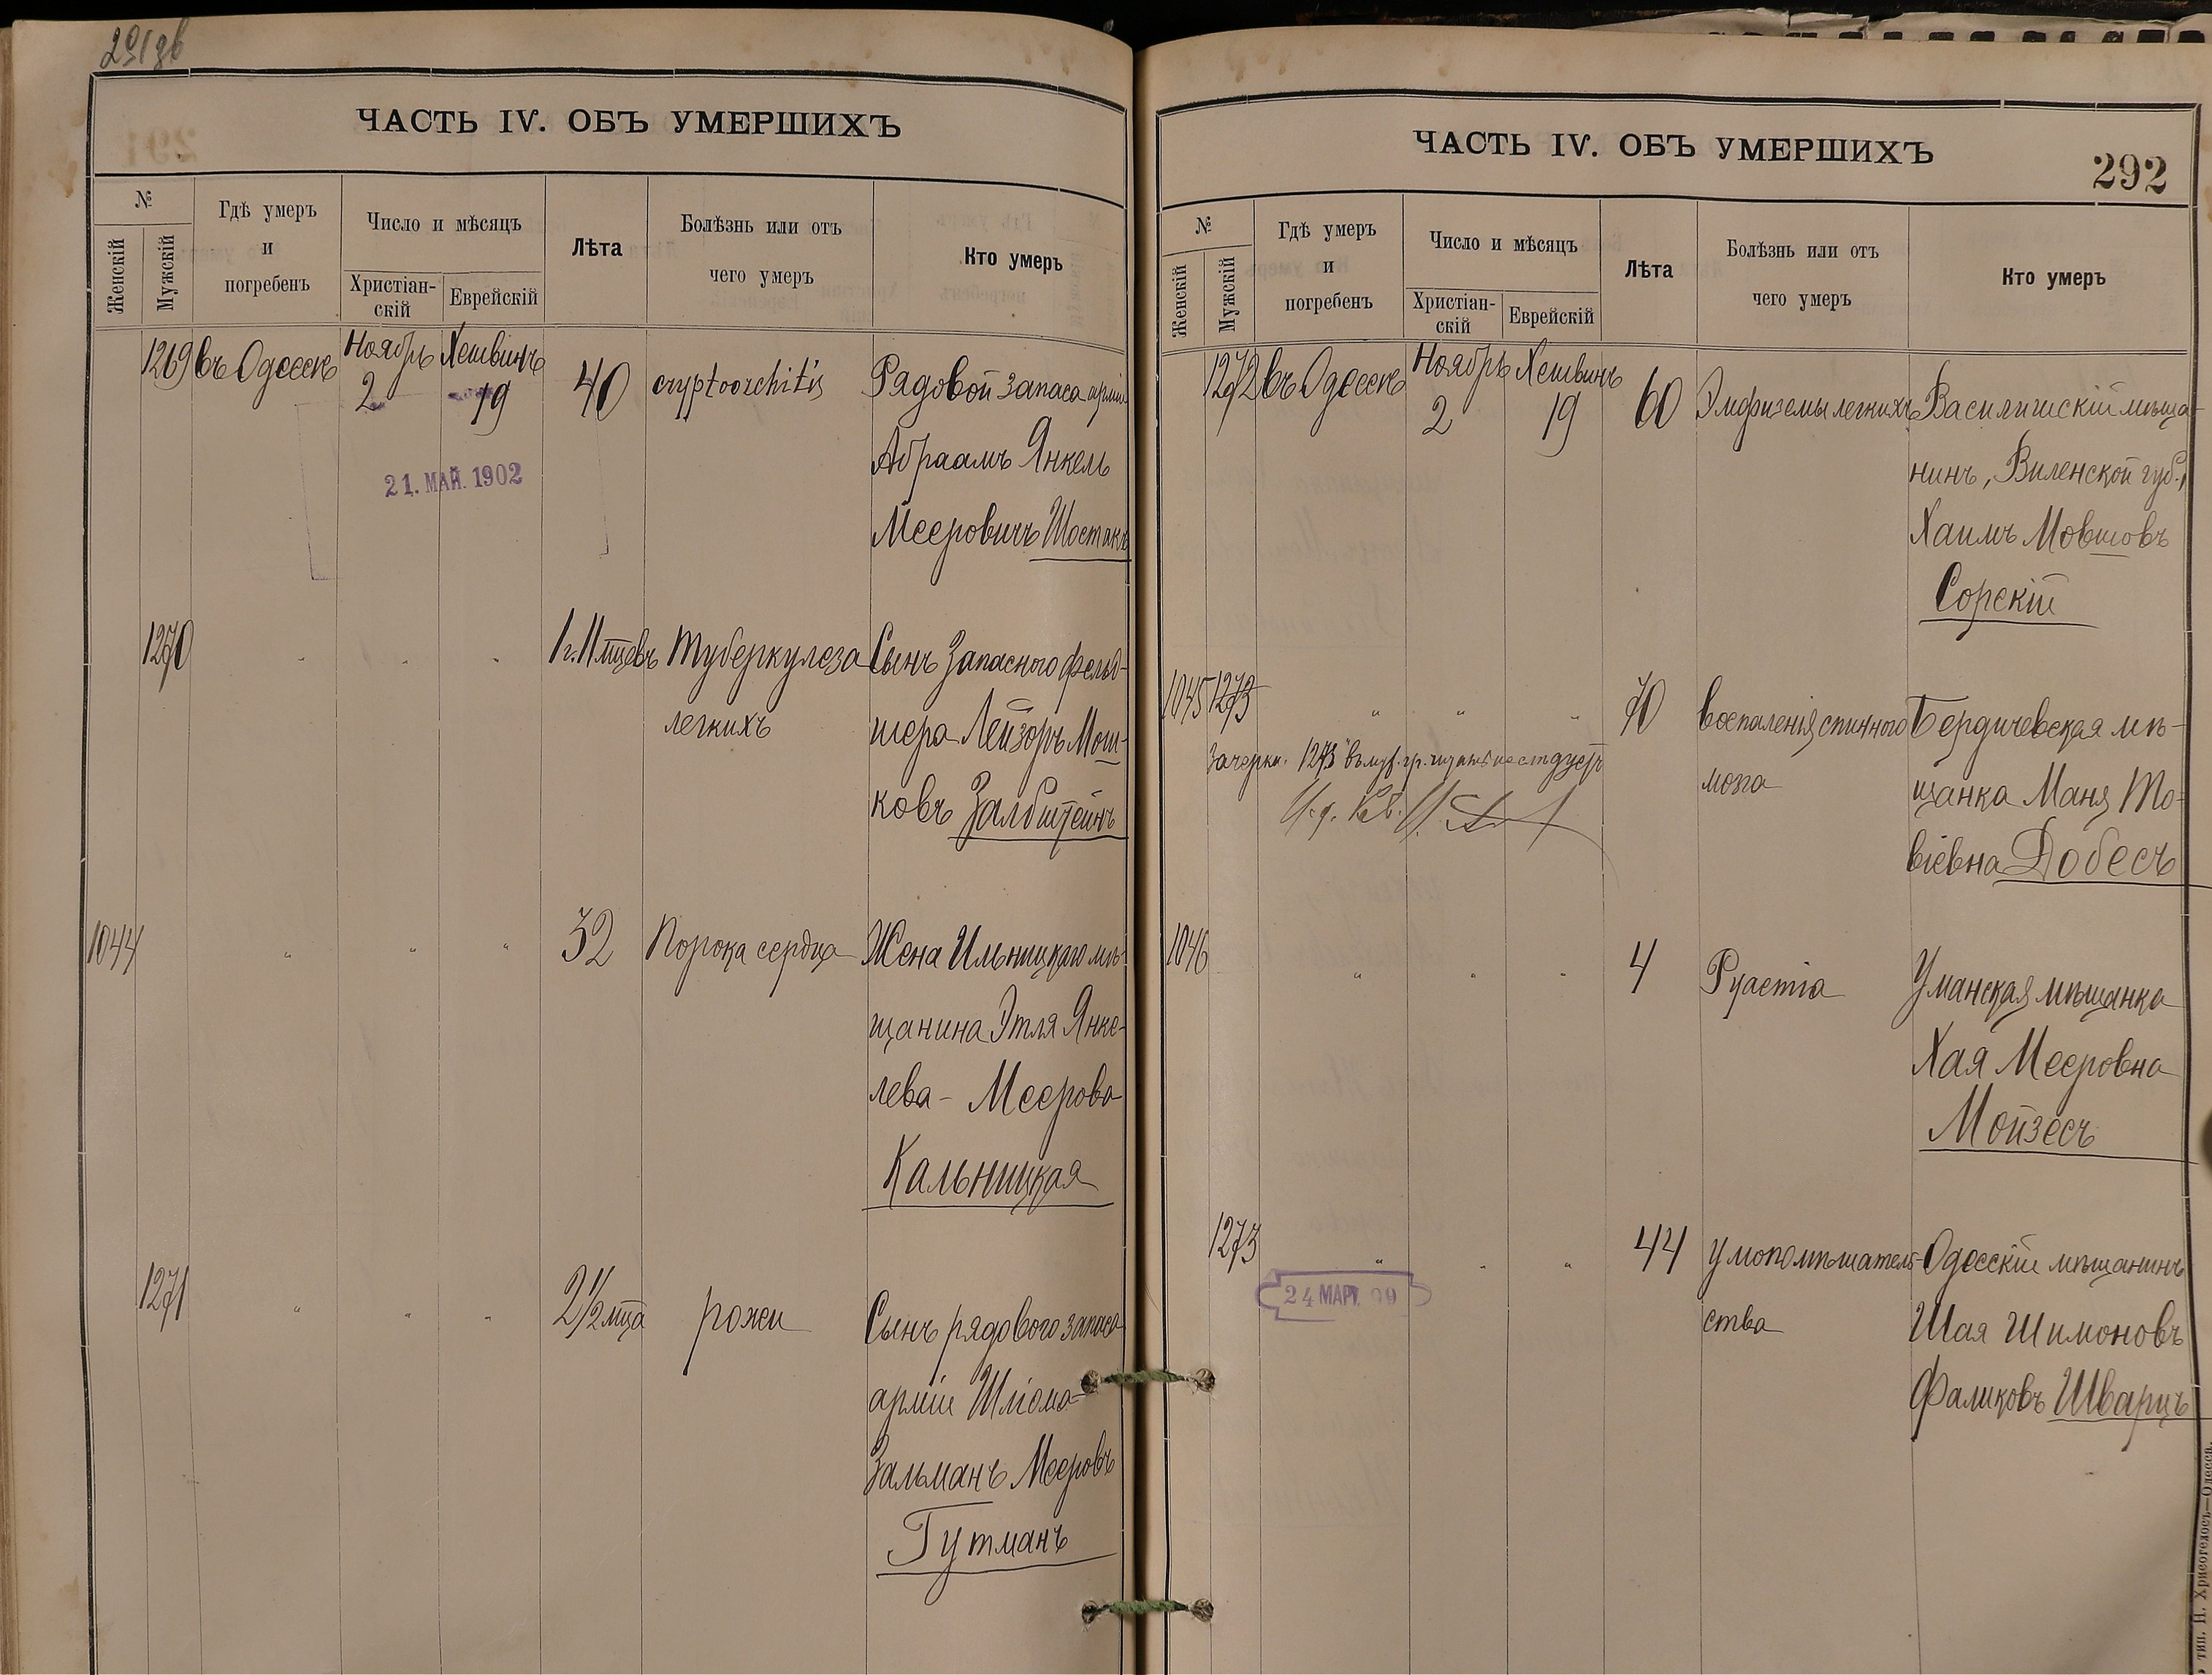 ЧАСТЬ IV. ОБЪ УМЕРШИХЪ
№
Женскій
Мужскій
Гдѣ умеръ
и
погребенъ
Число и мѣсяцъ
Христіан-
скій
Еврейскій
Лѣта
Болѣзнь или отъ
чего умеръ
Кто умеръ
1269 въ Одессѣ Ноябрь 2 Хешвинъ 19 40 cryptoorchitis Рядовой запаса арміи
Абраамъ Янкель
Мееровичъ Шостакъ
21. МАЙ. 1902
1270 " " " 1 г. 11 мцевъ Туберкулеза Сынъ Запасного фельд-
легкихъ шера Лейзоръ Мош-
ковъ Залбштейнъ
1044 " " " 32 Порока сердца Жена Ильницкаго мѣ-
щанина Этля Янке-
лева - Меерова
Кальницкая
1271 " " " 2 1/2 мца рожи Сынъ рядового запаса
арміи Шліома-
Зальманъ Мееровъ
Гутманъ
ЧАСТЬ IV. ОБЪ УМЕРШИХЪ
292
№
Женскій
Мужскій
Гдѣ умеръ
и
погребенъ
Число и мѣсяцъ
Христіан-
скій
Еврейскій
Лѣта
Болѣзнь или отъ
чего умеръ
Кто умеръ
1272 въ Одессѣ Ноябрь 2 Хешвинъ 19 60 Эмфиземы легкихъ Василишскій мѣща-
нинъ, Виленской губ.,
Хаимъ Мовшовъ
Сорскій
1045 1273 " " " 70 воспаленія спинного Бердичевская мѣ-
Зачеркн. "1273" въ муж. гр. читать не слѣдуетъ
мозга щанка Маня То-
И. д. Каз.
віевна Добесъ
1046 " " " 4 Pyaemia Уманская мѣщанка
Хая Мееровна
Мойзесъ
1273 " " " 44 умопомѣшатель- Одесскій мѣщанинъ
24 МАРТ. 99
ства Шая Шимоновъ
Фаликовъ Шварцъ
тип. И. Хрисогелосъ—Одесса.